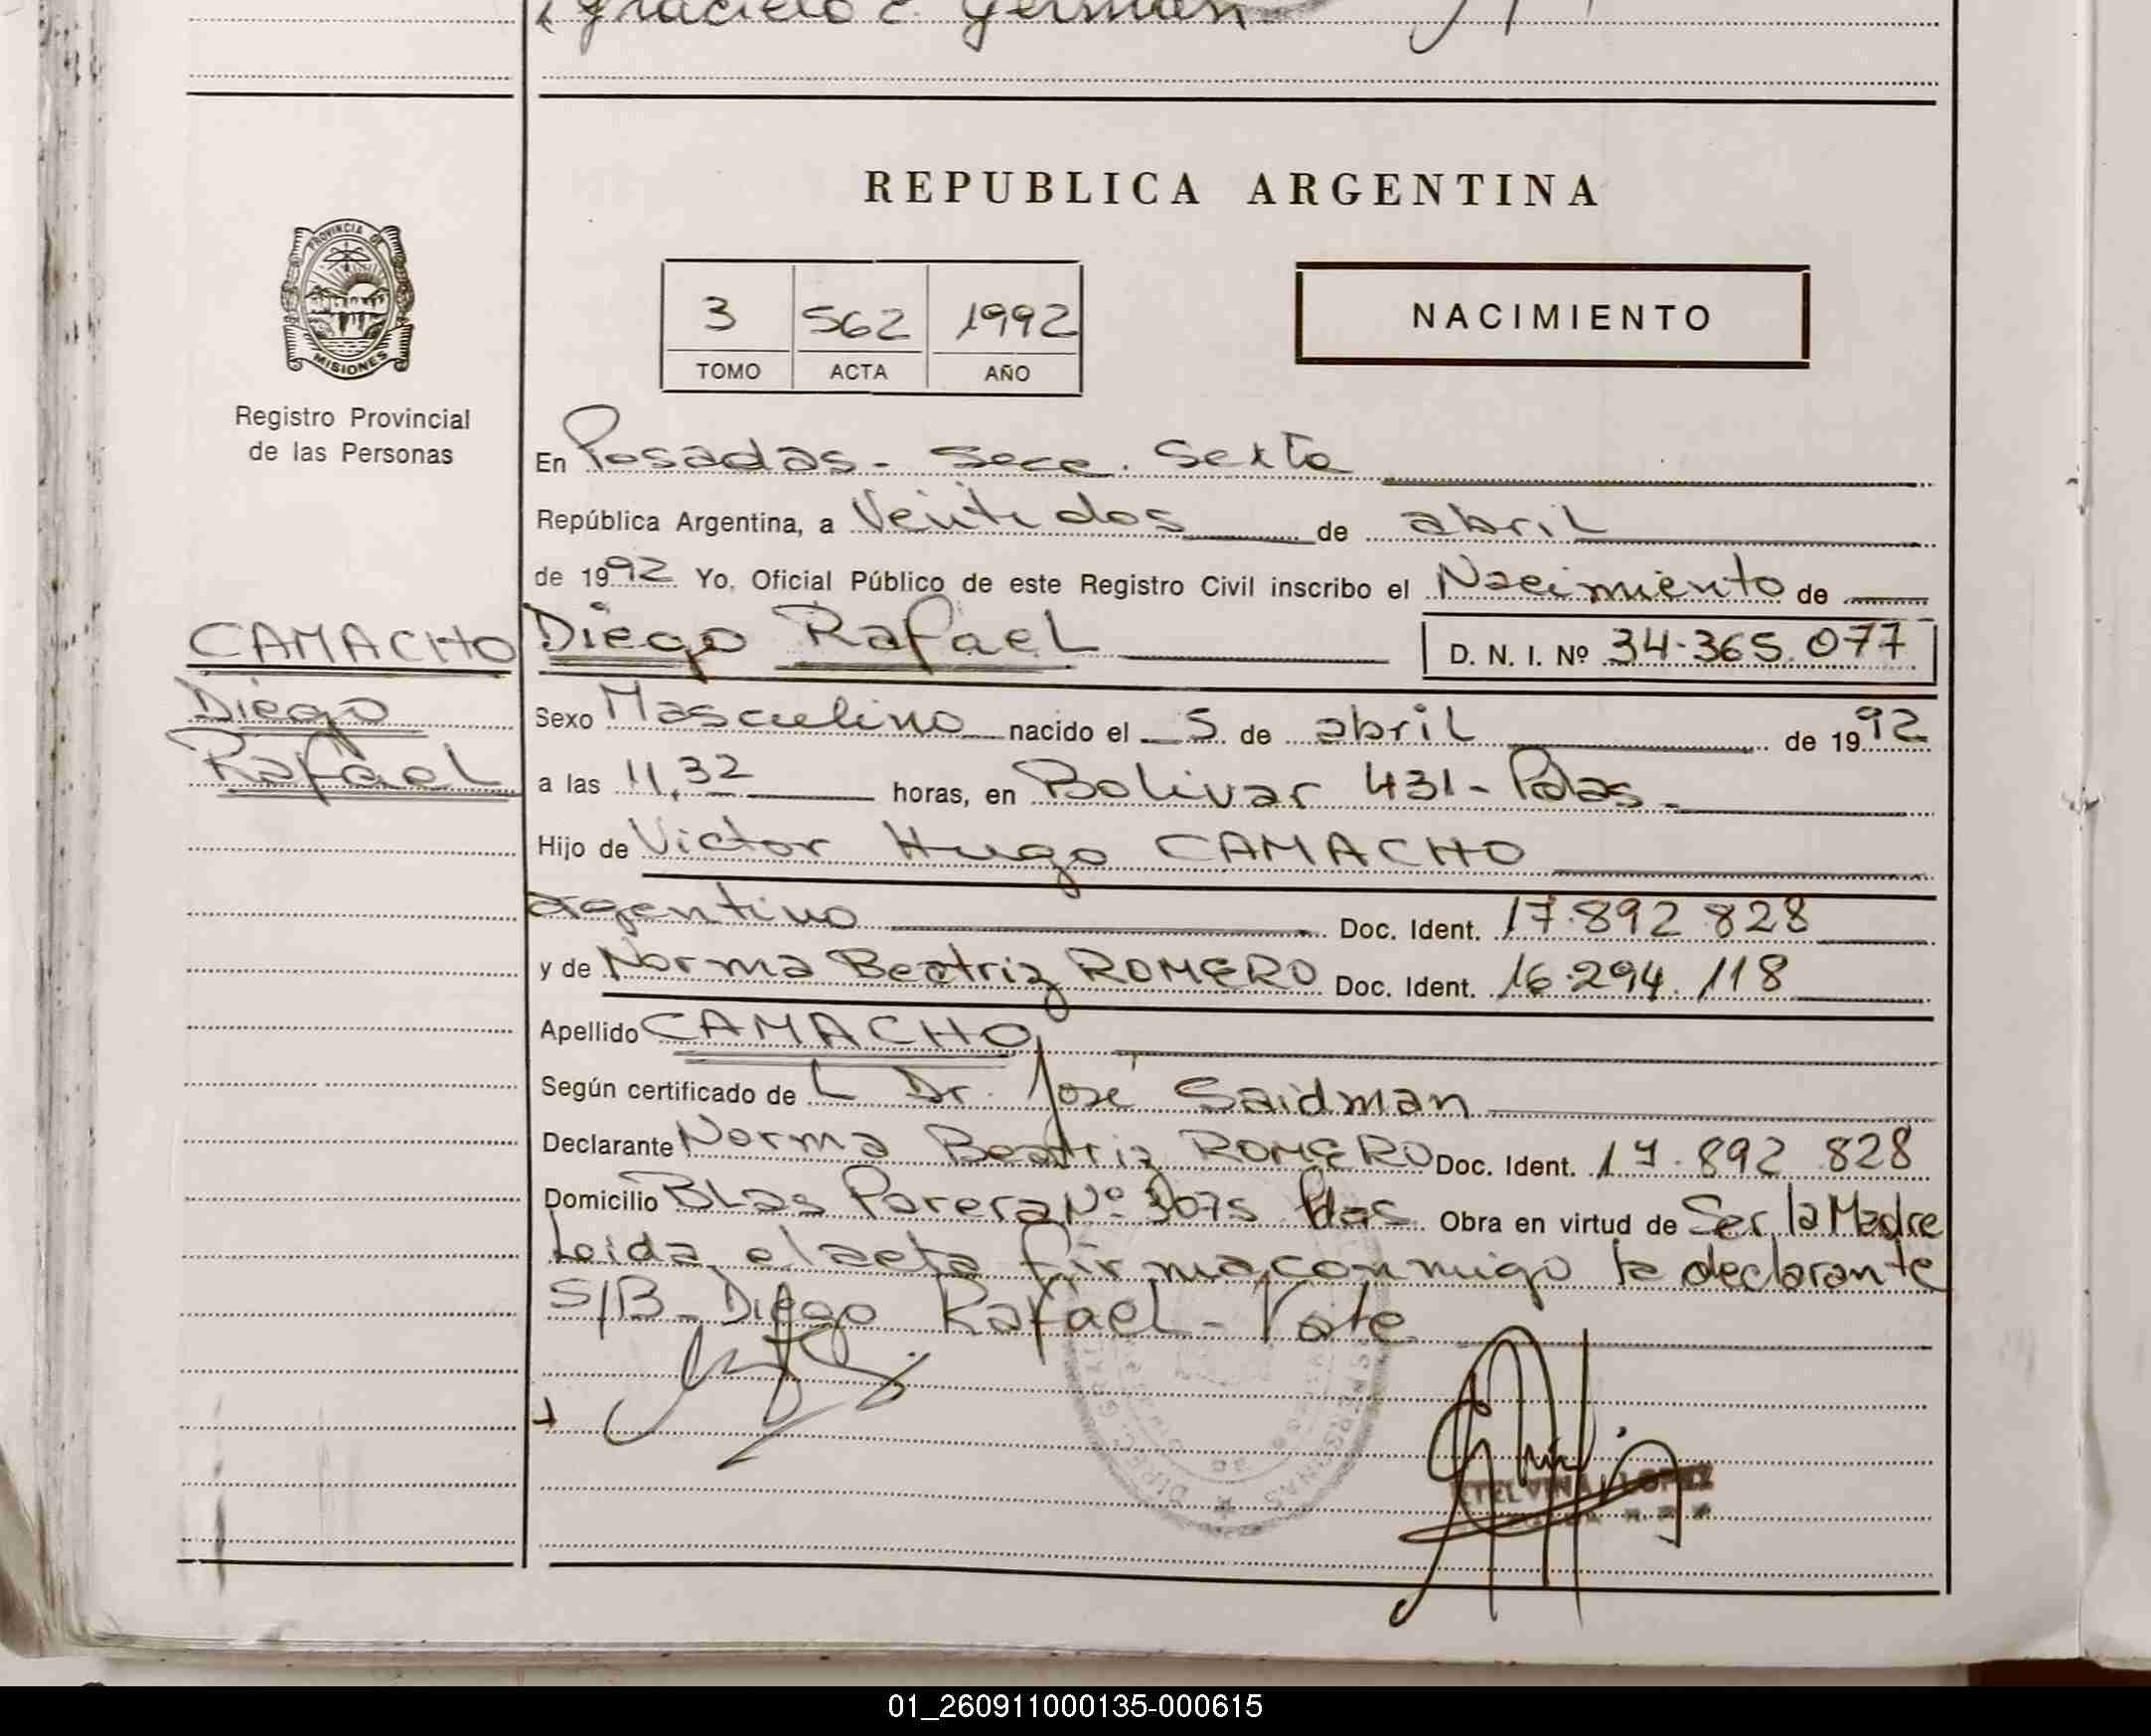 Graciela E. Germán
REPUBLICA ARGENTINA
PROVINCIA DE
MISIONES
Registro Provincial
de las Personas
3 562 1992
TOMO ACTA AÑO
NACIMIENTO
En Posadas - Secc. Sexta
República Argentina, a Veintidos de abril
de 1992 Yo, Oficial Público de este Registro Civil inscribo el Nacimiento de
CAMACHO
Diego
Rafael
Diego Rafael D. N. I. Nº 34.365.077
Sexo Masculino nacido el 5 de abril de 1992
a las 11,32 horas, en Bolivar 431 - Pdas.
Hijo de Victor Hugo CAMACHO
argentino Doc. Ident. 17.892.828
y de Norma Beatriz ROMERO Doc. Ident. 16.294.118
Apellido CAMACHO
Según certificado de L Dr. José Saidman
Declarante Norma Beatriz ROMERO Doc. Ident. 17.892.828
Domicilio Blas Parera Nº 3075 Pdas Obra en virtud de Ser la Madre
Leida el acta firma conmigo la declarante
S/B - Diego Rafael - Vale
ETELVINA LOPEZ
01_260911000135-000615